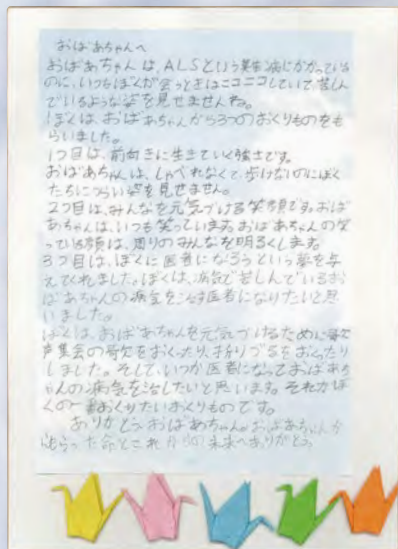 おばあちゃんへ
おばあちゃんは、ALSという難病にかかっている
のに、いつもぼくが会うときはニコニコしていて、苦しん
でいるような姿を見せませんね。
ぼくは、おばあちゃんから3つのおくりものをも
らいました。
1つ目は、前向きに生きていく強さです。
おばあちゃんは、しゃべれなくて、歩けないのにぼく
たちにつらい姿を見せません。
2つ目は、みんなを元気づける笑顔です。おば
あちゃんは、いつも笑っています。おばあちゃんの笑
っている顔は、周りのみんなを明るくします。
3つ目は、ぼくに医者になろうという夢を与
えてくれました。ぼくは、病気で苦しんでいるお
ばあちゃんの病気を治す医者になりたいと思
いました。
ぼくは、おばあちゃんを元気づけるために歌
声集会の歌をおくったり、折りづるをおくったり
しました。そして、いつか医者になっておばあち
ゃんの病気を治したいと思います。それがぼ
くの一番おくりたいおくりものです。
ありがとうおばあちゃん。おばあちゃんか
らもらった命とこれからの未来へありがとう